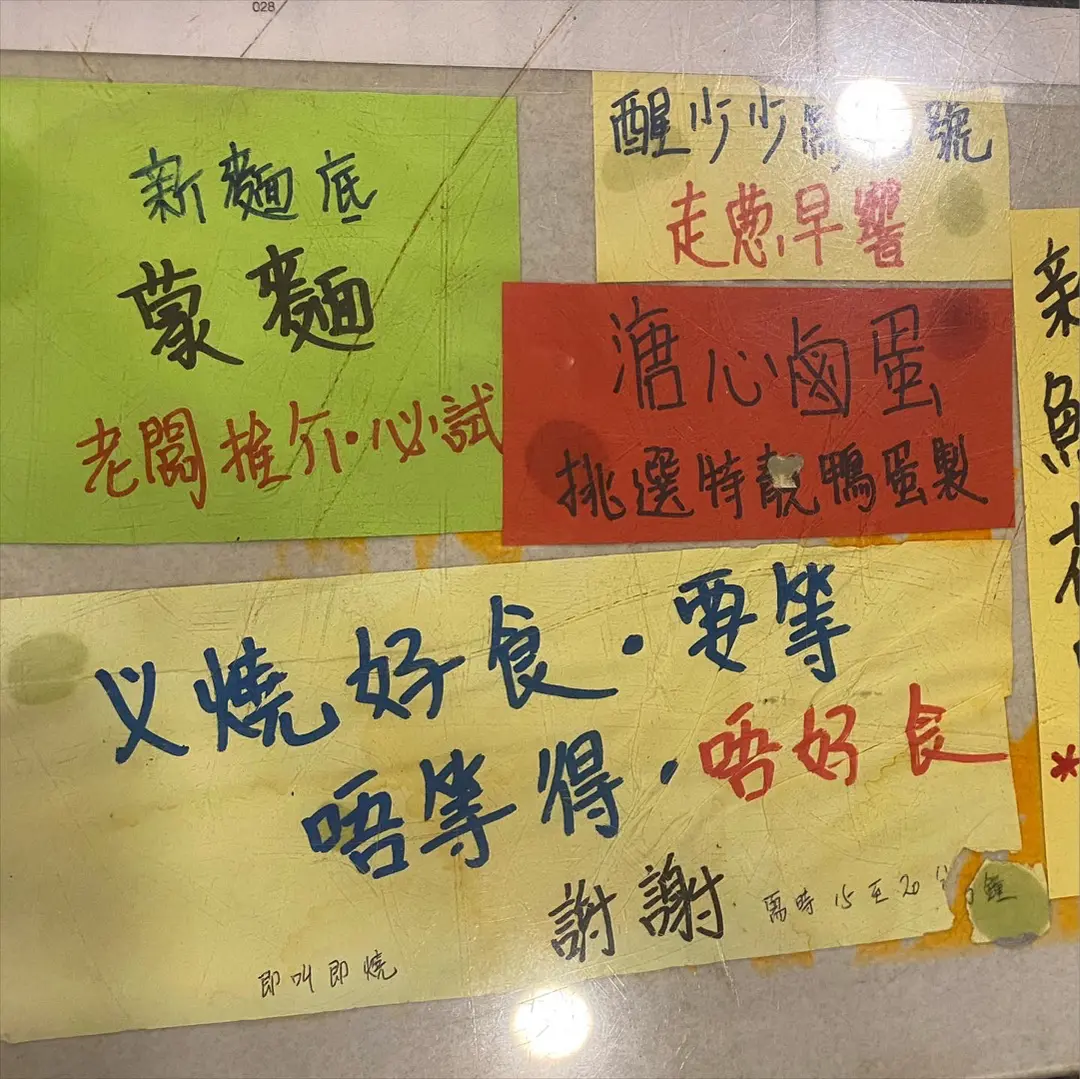 028
新麵底
蒙麵
老闆推介·必試
醒少少 號
走蔥早響
溏心鹵蛋
挑選特靚鴨蛋製
叉燒好食·要等
唔等得·唔好食
謝謝
需時15至20分鐘
即叫即燒
新
鮮
*